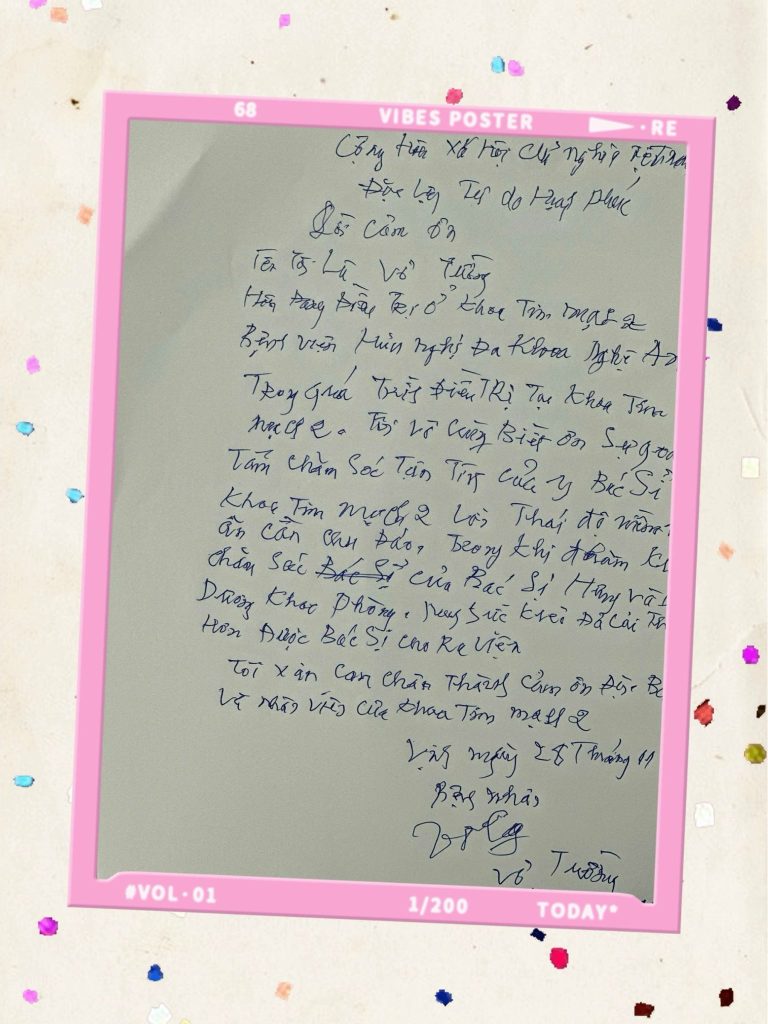 68 VIBES POSTER ▶ · RE
Cộng hòa xã hội chủ nghĩa
Độc lập Tự do Hạnh phúc
Lời cảm ơn
Tên tôi là Võ Tường
Hiện đang điều trị ở khoa Tim mạch 2
Bệnh viện Hữu nghị Đa khoa Nghệ An
Trong quá trình điều trị tại khoa Tim
mạch 2. Tôi vô cùng biết ơn sự
Tâm chăm sóc tận tình của y Bác sĩ
Khoa Tim mạch 2 với thái độ
ân cần chu đáo. Trong khi
chăm sóc của Bác sĩ
Dương Khoa phòng. sức khỏe đã cải
Hơn được Bác sĩ cho ra viện
Tôi xin chân thành cảm ơn
và nhân viên của khoa Tim mạch 2
Vinh ngày 28 tháng 11
Bệnh nhân
Võ Tường
#VOL·01 1/200 TODAY*